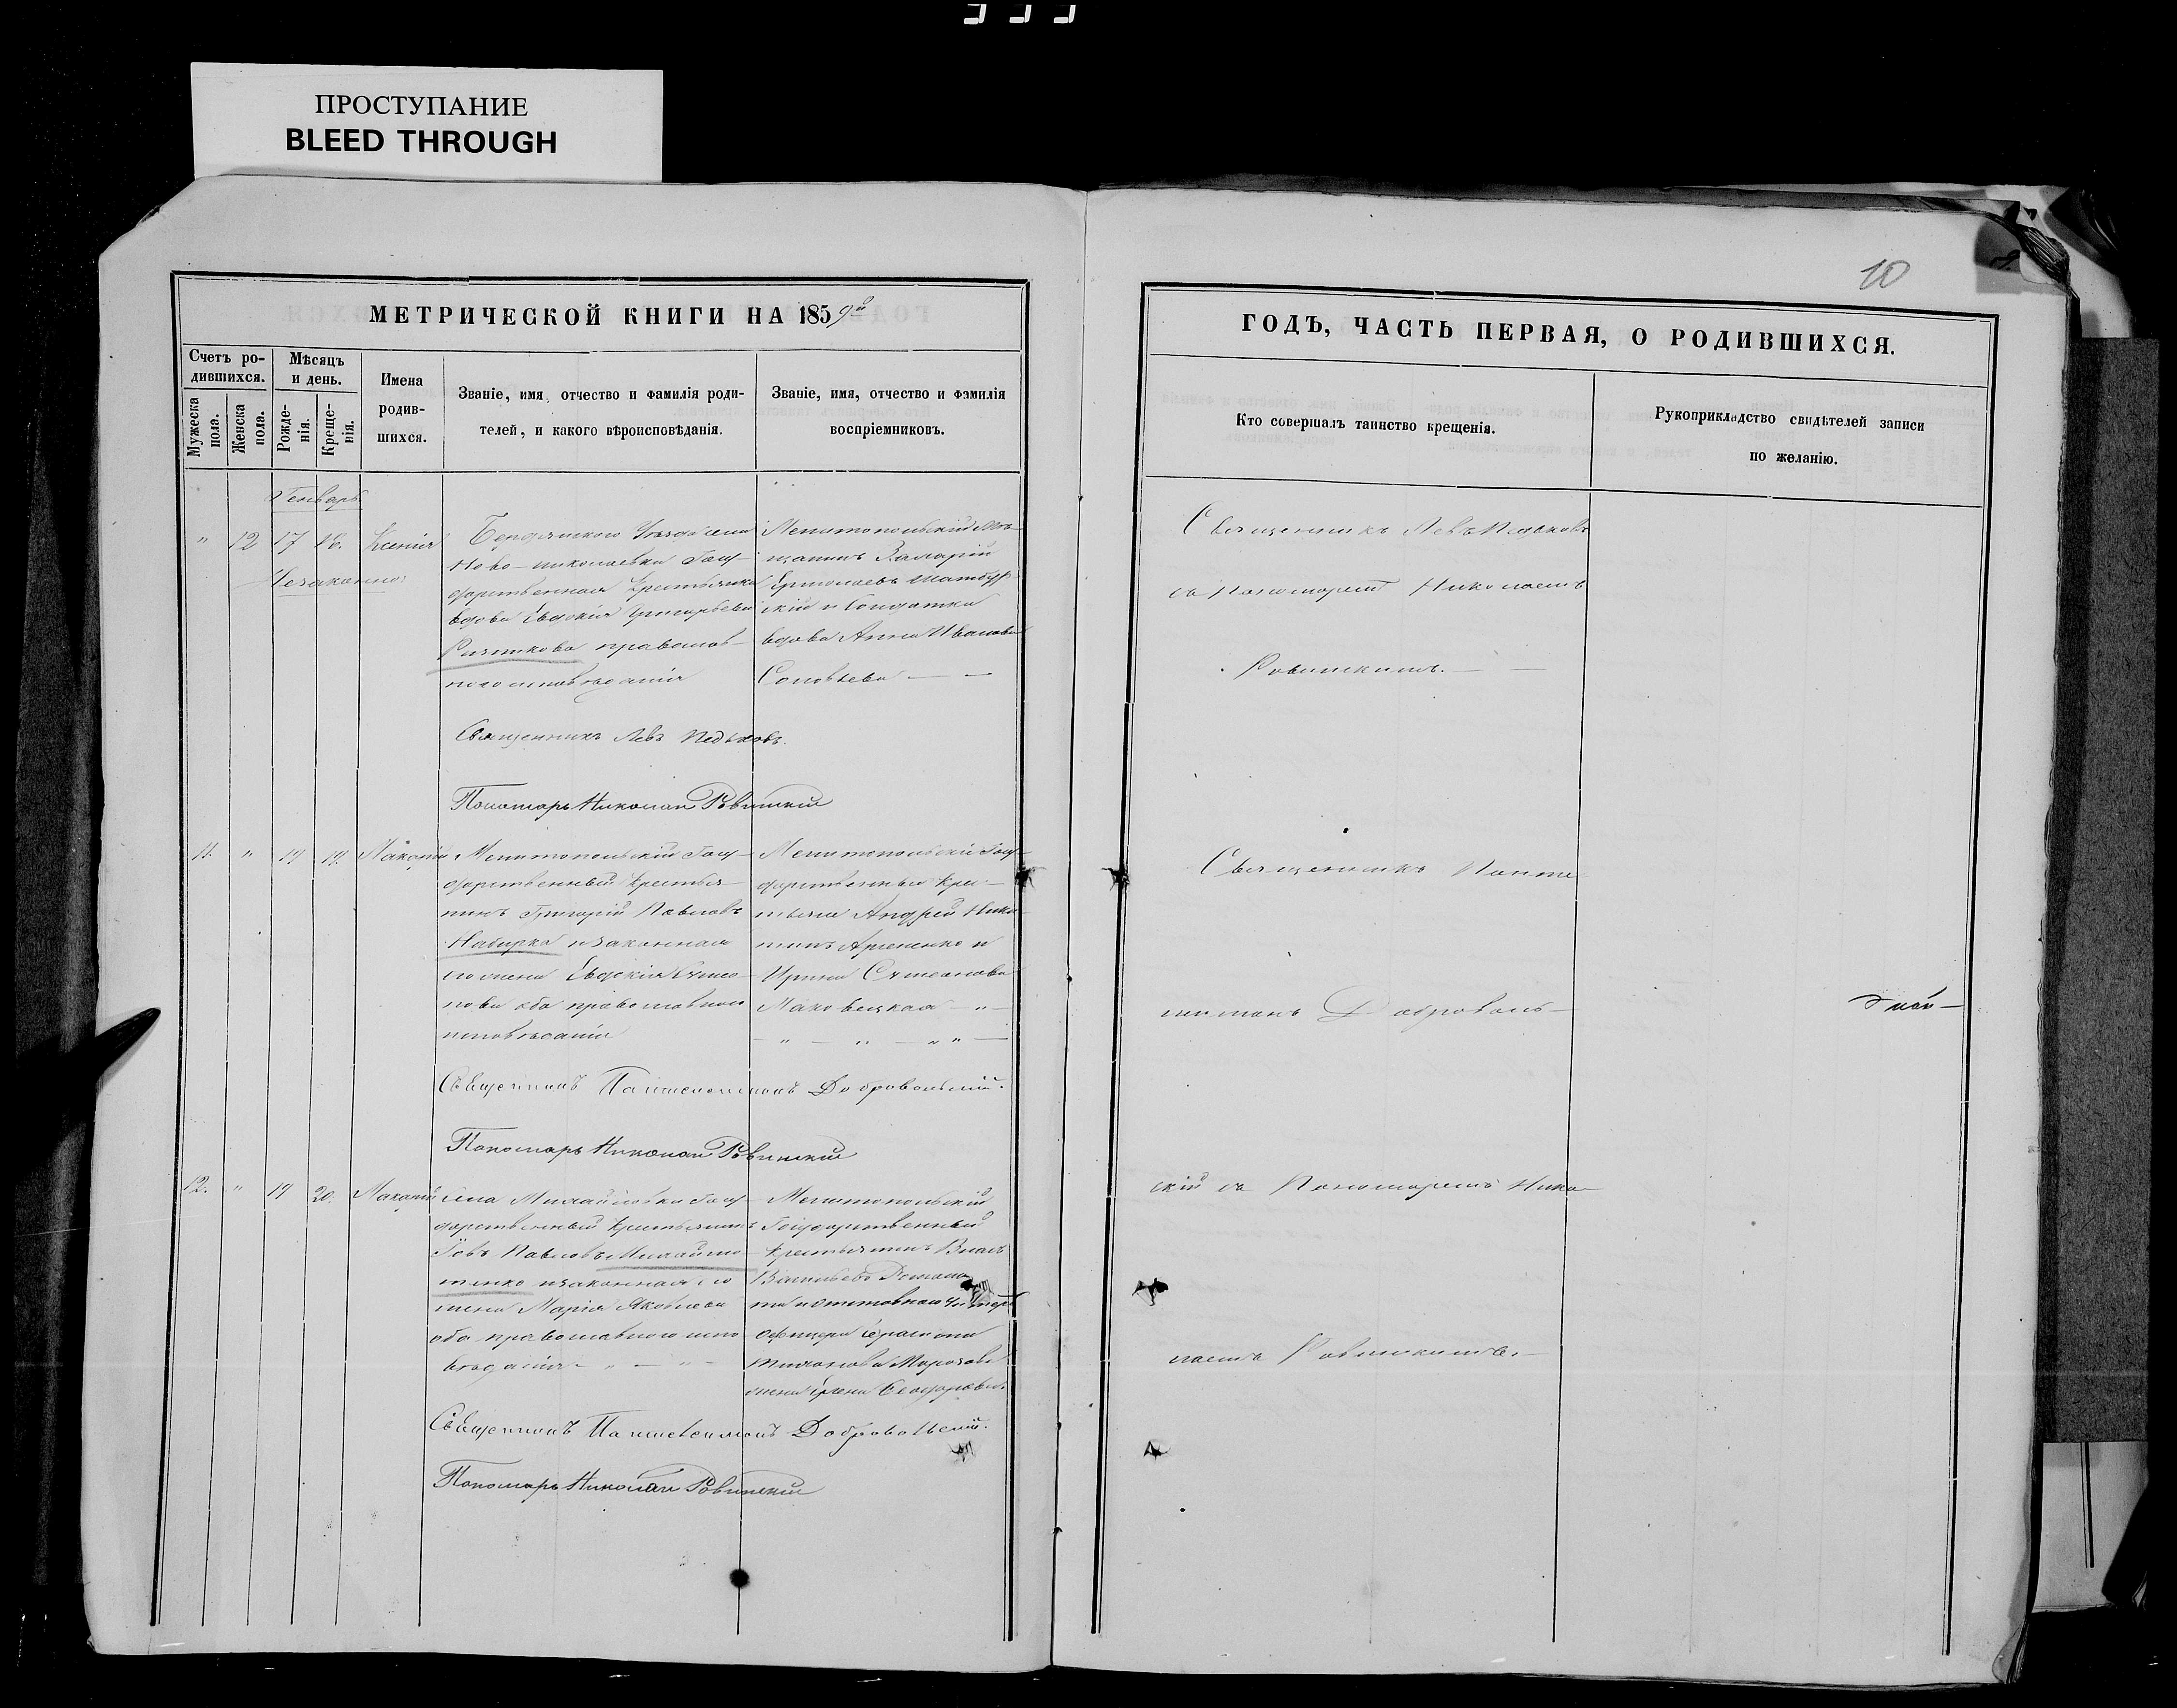 ПРОСТУПАНИЕ
BLEED THROUGH
10
МЕТРИЧЕСКОЙ КНИГИ НА 1859й
Счетъ ро-
дившихся.
Мѣсяцъ
и день.
Мужеска
пола.
Женска
пола.
Рожде-
нія.
Креще-
нія.
Имена
родив-
шихся.
Званіе, имя, отчество и фамилія роди-
телей, и какого вѣроисповѣданія.
Званіе, имя, отчество и фамилія
воспріемниковъ.
Генварь
" 12 17 18. Ксенія
Незаконно:
Бердянского Уѣзда села
Ново-николаевки Госу-
дарственная Крестьянка
вдова Евдокія Григорьева
православ-
ного исповѣданія
Мелитопольскій Мѣ-
щанинъ
Ермолаевъ
скій и Солдатка
вдова Анна Иванова
Соловьева
Священникъ Левъ
Пономарь Николай Ровинскій
11. " 19 19. Макарій
Мелитопольскій Госу-
дарственный Крестья-
нинъ Григорій Павловъ
Набирка и законная
его жена Евдокія Симео-
нова оба православного
исповѣданія
Мелитопольскіе Госу-
дарственные Кре-
стьяне Андрей
и
Ирина Симеонова
Маковецкая
Священникъ Пантелеимонъ Добровольскій.
Пономарь Николай Ровинскій
12. " 19 20. Макарій
села Михайловки Госу-
дарственный Крестьянинъ
Іовъ Павловъ Михайли-
ченко и законная его
жена Марія Яковлева
оба православного испо-
вѣданія
Мелитопольскій
Государственный
Крестьянинъ Власъ
Васильевъ
Офицера
Морозова
жена Елена Феодорова.
Священникъ Пантелеимонъ Добровольскій.
Пономарь Николай Ровинскій
ГОДЪ, ЧАСТЬ ПЕРВАЯ, О РОДИВШИХСЯ.
Кто совершалъ таинство крещенія.
Рукоприкладство свидѣтелей записи
по желанію.
Священникъ Левъ
съ Пономаремъ Николаемъ
Ровинскимъ.
Священникъ Панте-
леимонъ Доброволь-
скій съ Пономаремъ Нико-
лаемъ Ровинскимъ.